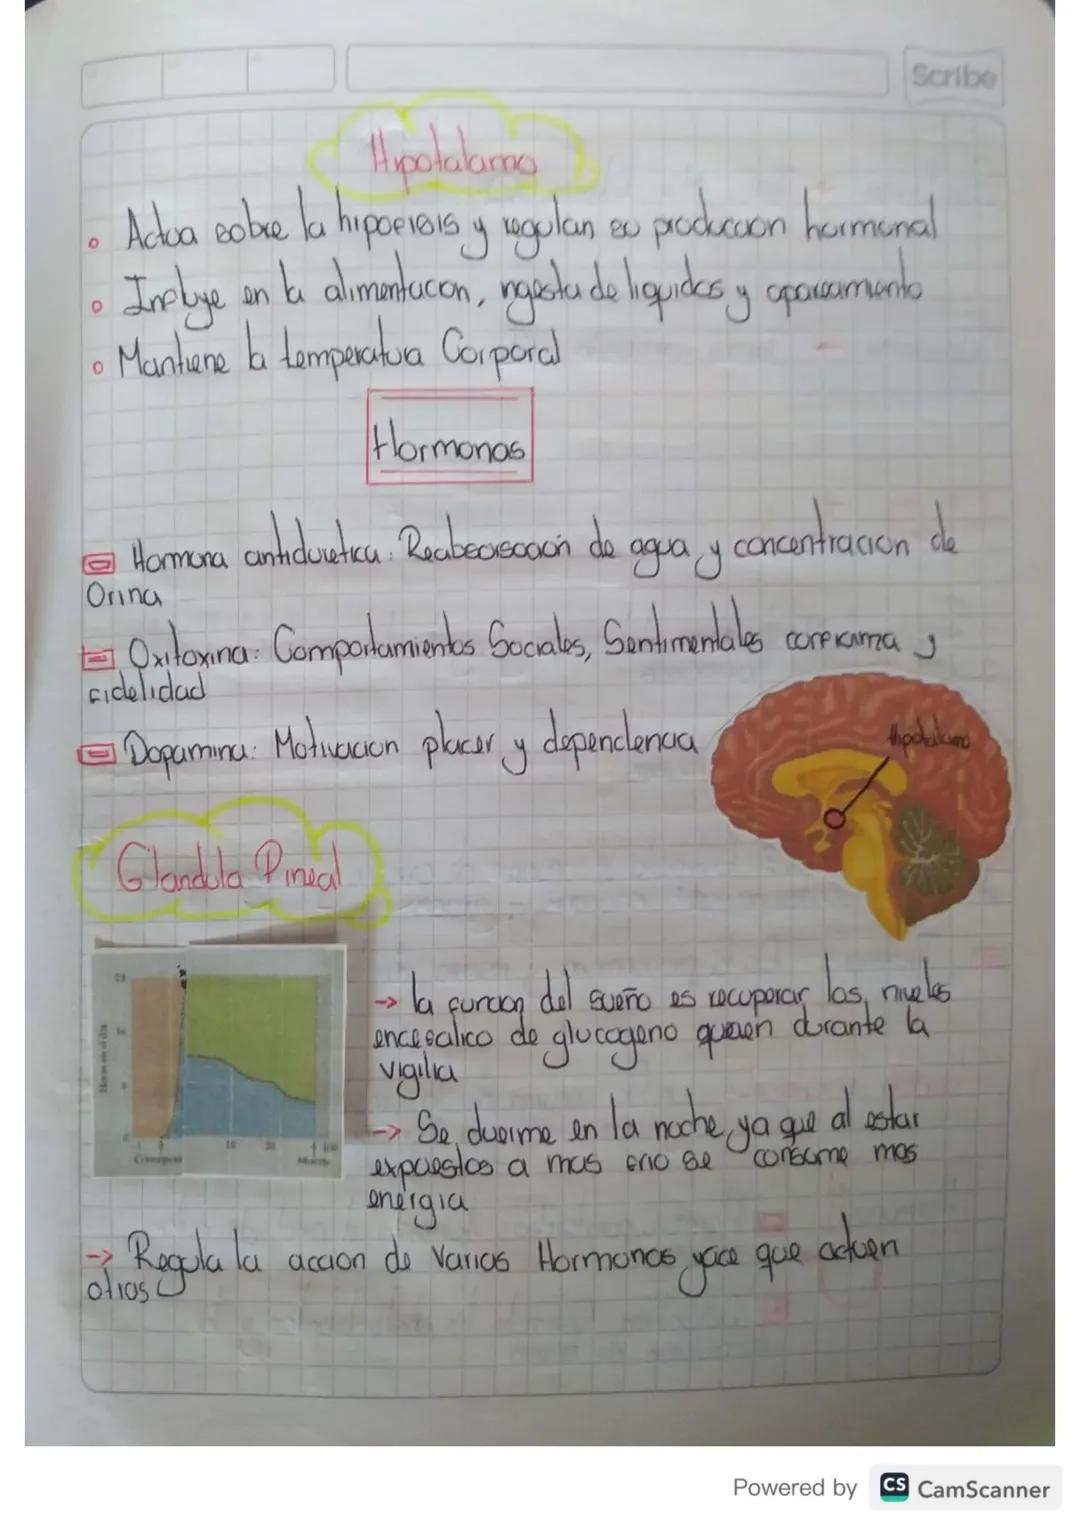 Scribe
Hipotalamo
Actua sobre la hipofisis y regulan su produccion hormonal
Influye en la alimentacion, ingesta de liquidos y apareamiento
Mantiene la temperatura Corporal
Hormonas
Hormona antiduretica: Reabsorcion de agua y concentracion de
Orina
Oxitoxina: Comportamientos Sociales, Sentimentales y
fidelidad
Dopamina: Motivacion placer y dependencia
Hipotalamo
Glandula Pineal
→ la funcion del sueño es recuperar los niveles
encefalico de glucogeno durante la
vigilia
→ Se duerme en la noche, ya que al estar
expuestos a mas frio se consume mas
energia
→ Regula la accion de Varias Hormonas y ace que actuen
otras
Horas en el día
16
8
0
10
20
Muerte
Powered by CS CamScanner